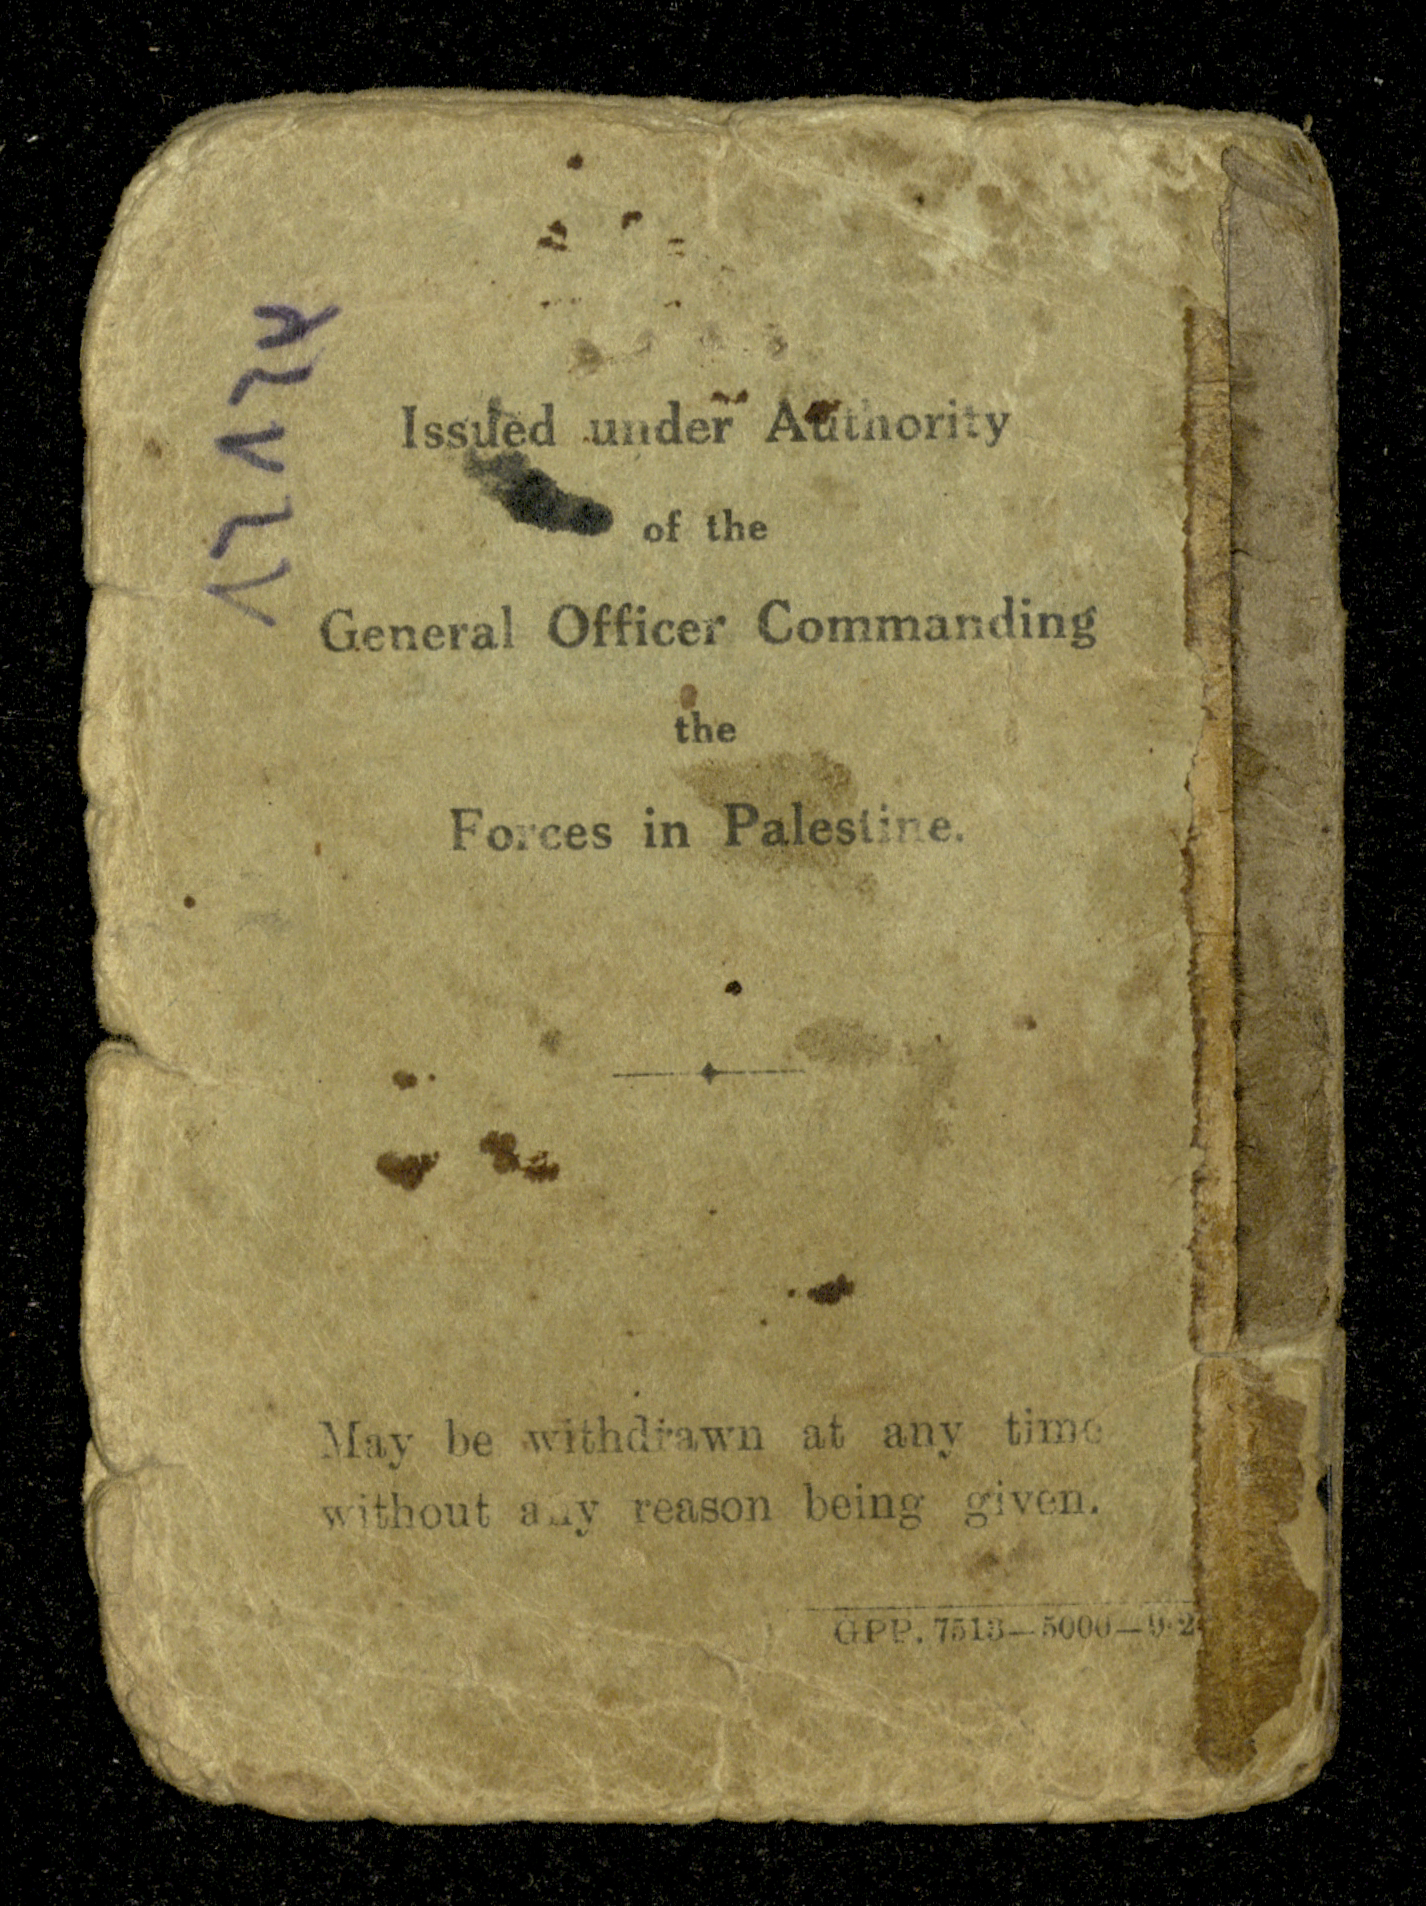 Issued under Authority
of the
General Officer Commanding
the
Forces in Palestine.
May be withdrawn at any time
without any reason being given.
GPP. 7513—5000—9·2